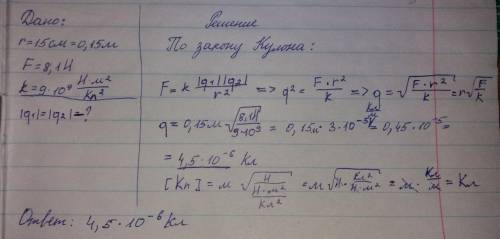 Дано:
r=15см=0,15м
F=8,1Н
k=9·10⁹ Н·м²/Кл²
|q₁|=|q₂|=?
Решение
По закону Кулона:
F = k |q₁||q₂|/r² => q² = F·r²/k => q = √(F·r²/k) = r√(F/k)
q = 0,15м √(8,1Н/9·10⁹) = 0,15м·3·10⁻⁵ Кл/м = 0,45·10⁻⁵ =
= 4,5·10⁻⁶ Кл
[Кл] = м √(Н/(Н·м²/Кл²)) = м √(Н·Кл²/Н·м²) = м · Кл/м = Кл
Ответ: 4,5·10⁻⁶ Кл